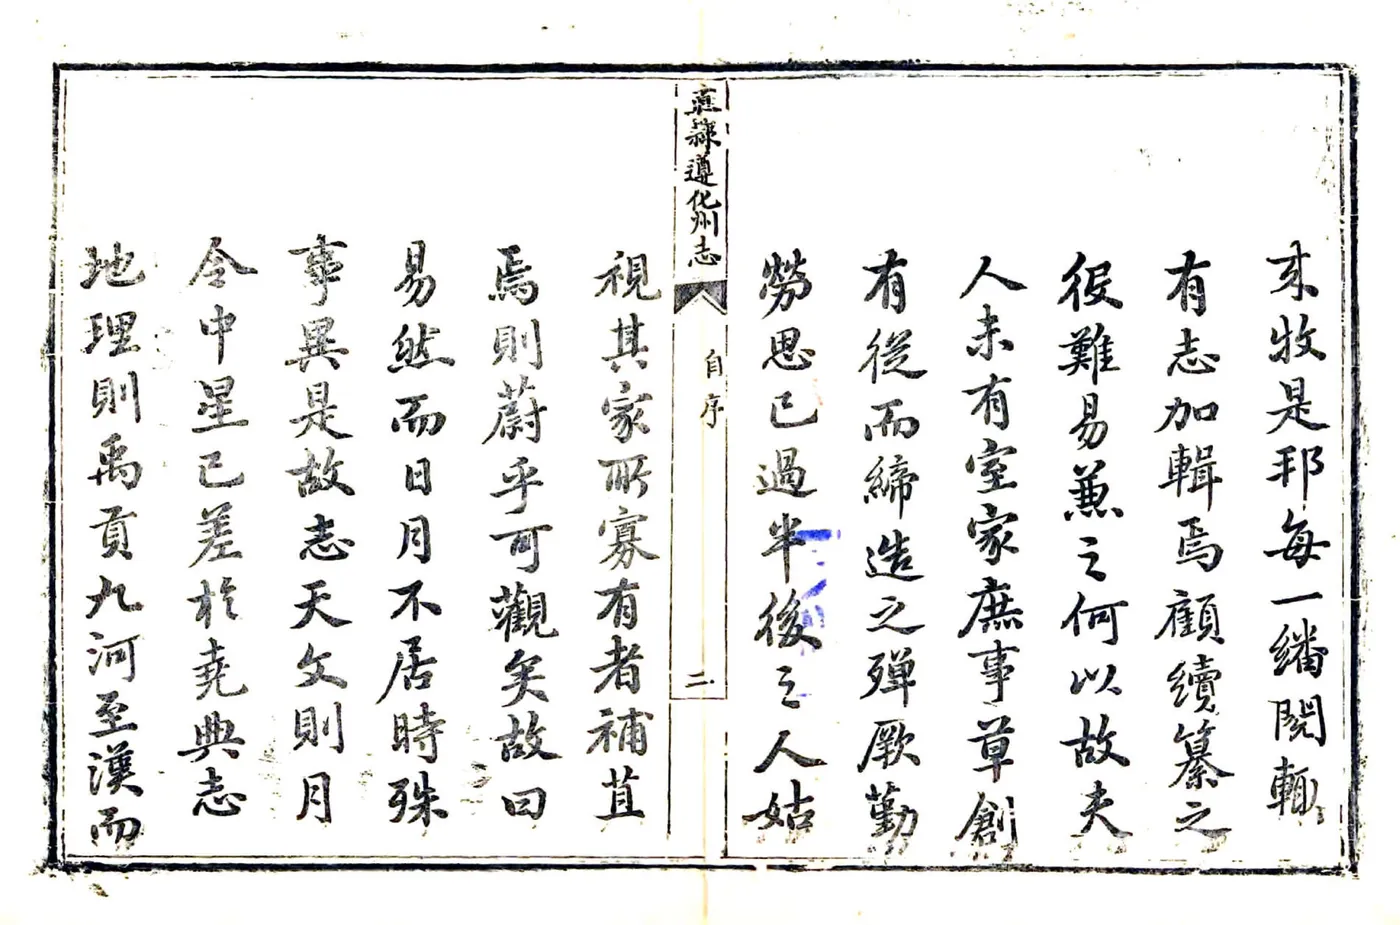 来牧是邦每一繙閱輒
有志加輯焉顧續纂之
役難易兼之何以故夫
人未有室家庶事草創
有從而締造之殫厥勤
勞思已過半後之人姑
直隸遵化州志
自序
二
視其家所寡有者補苴
焉則蔚乎可觀矣故曰
易然而日月不居時殊
事異是故志天文則月
令中星已差於堯典志
地理則禹貢九河至漢而